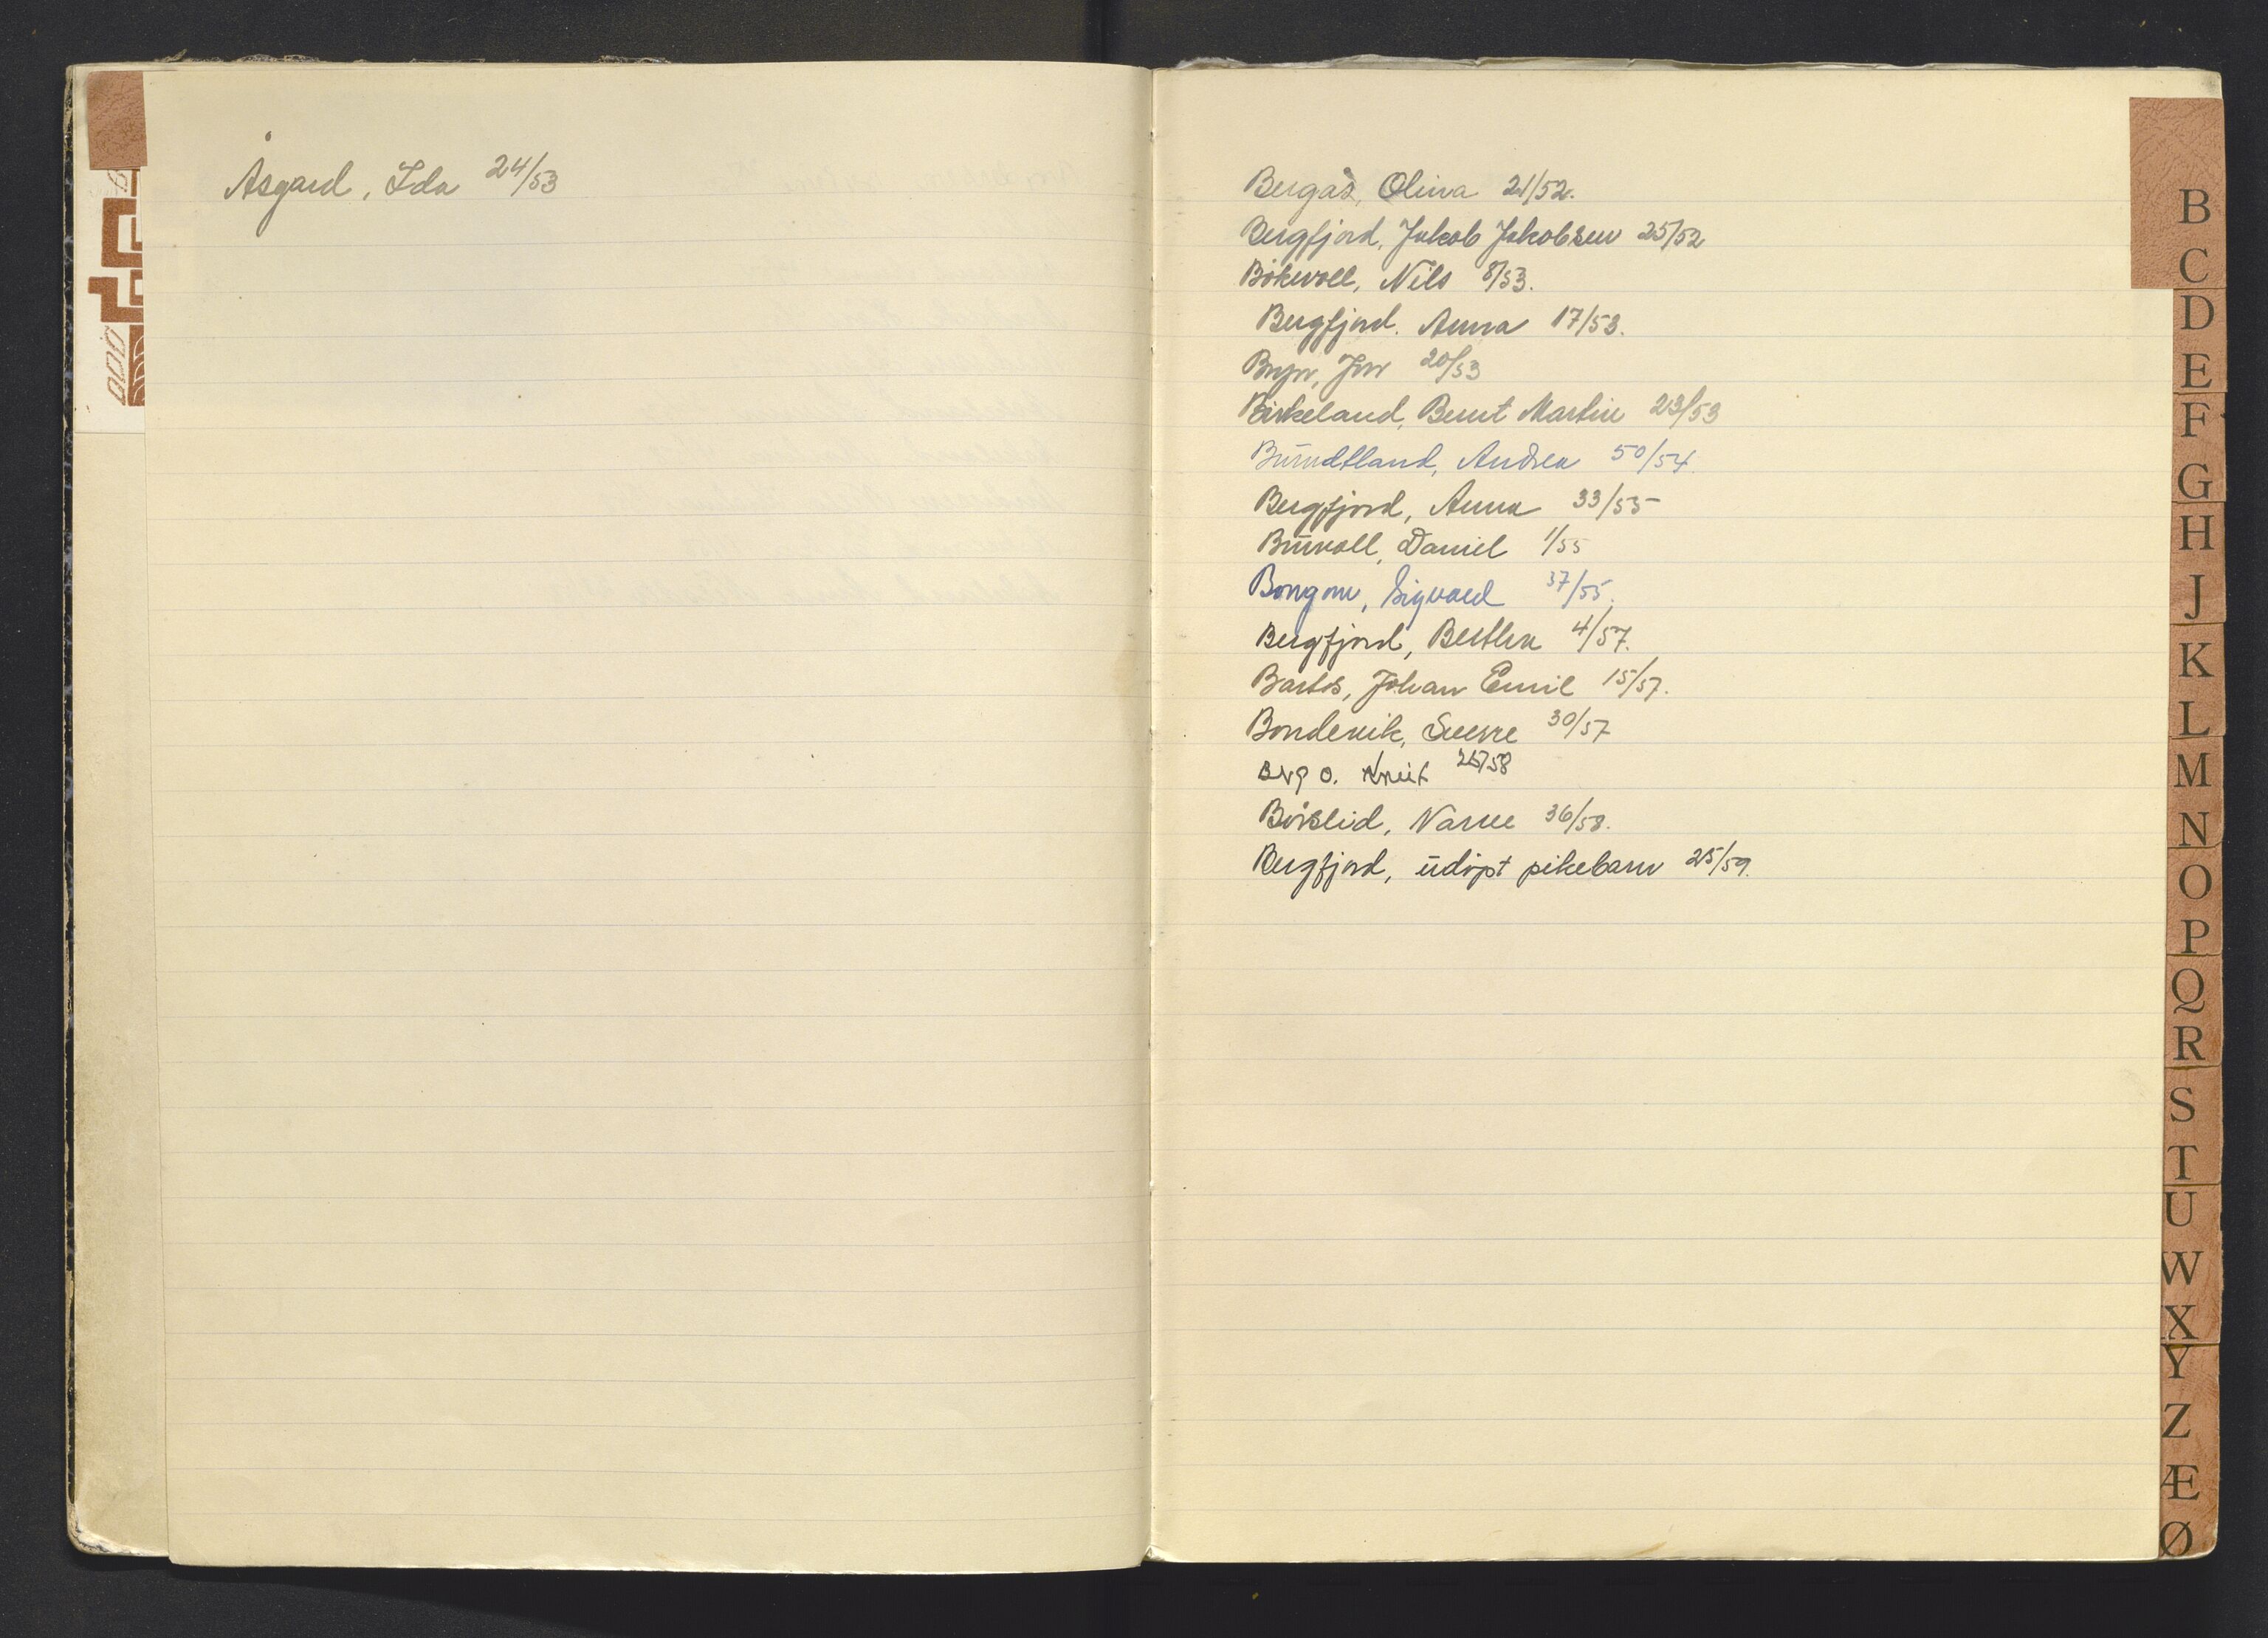 Åsgard, Ida 24/53
Bergås, Olina 21/52.
Bergfjord, Jakob Jakobsen 25/52
Bökvoll, Nils 8/53.
Bergfjord. Anna 17/53.
20/53
Birkeland, Bernt Martin 23/53
Andrea 50/54.
Bergfjord, Anna 33/55
Daniel 1/55
Bongom, Sigvard 37/55.
Bergfjord, Berthea 4/57.
Johan Emil 15/57.
Bondevik, Sverre 30/57
Berg O. Knut /58
Börslid, Narve 36/58.
Bergfjord, udöpt pikebarn 25/59.
B
C
D
E
F
G
H
J
K
L
M
N
O
P
Q
R
S
T
U
W
X
Y
Z
Æ
Ø